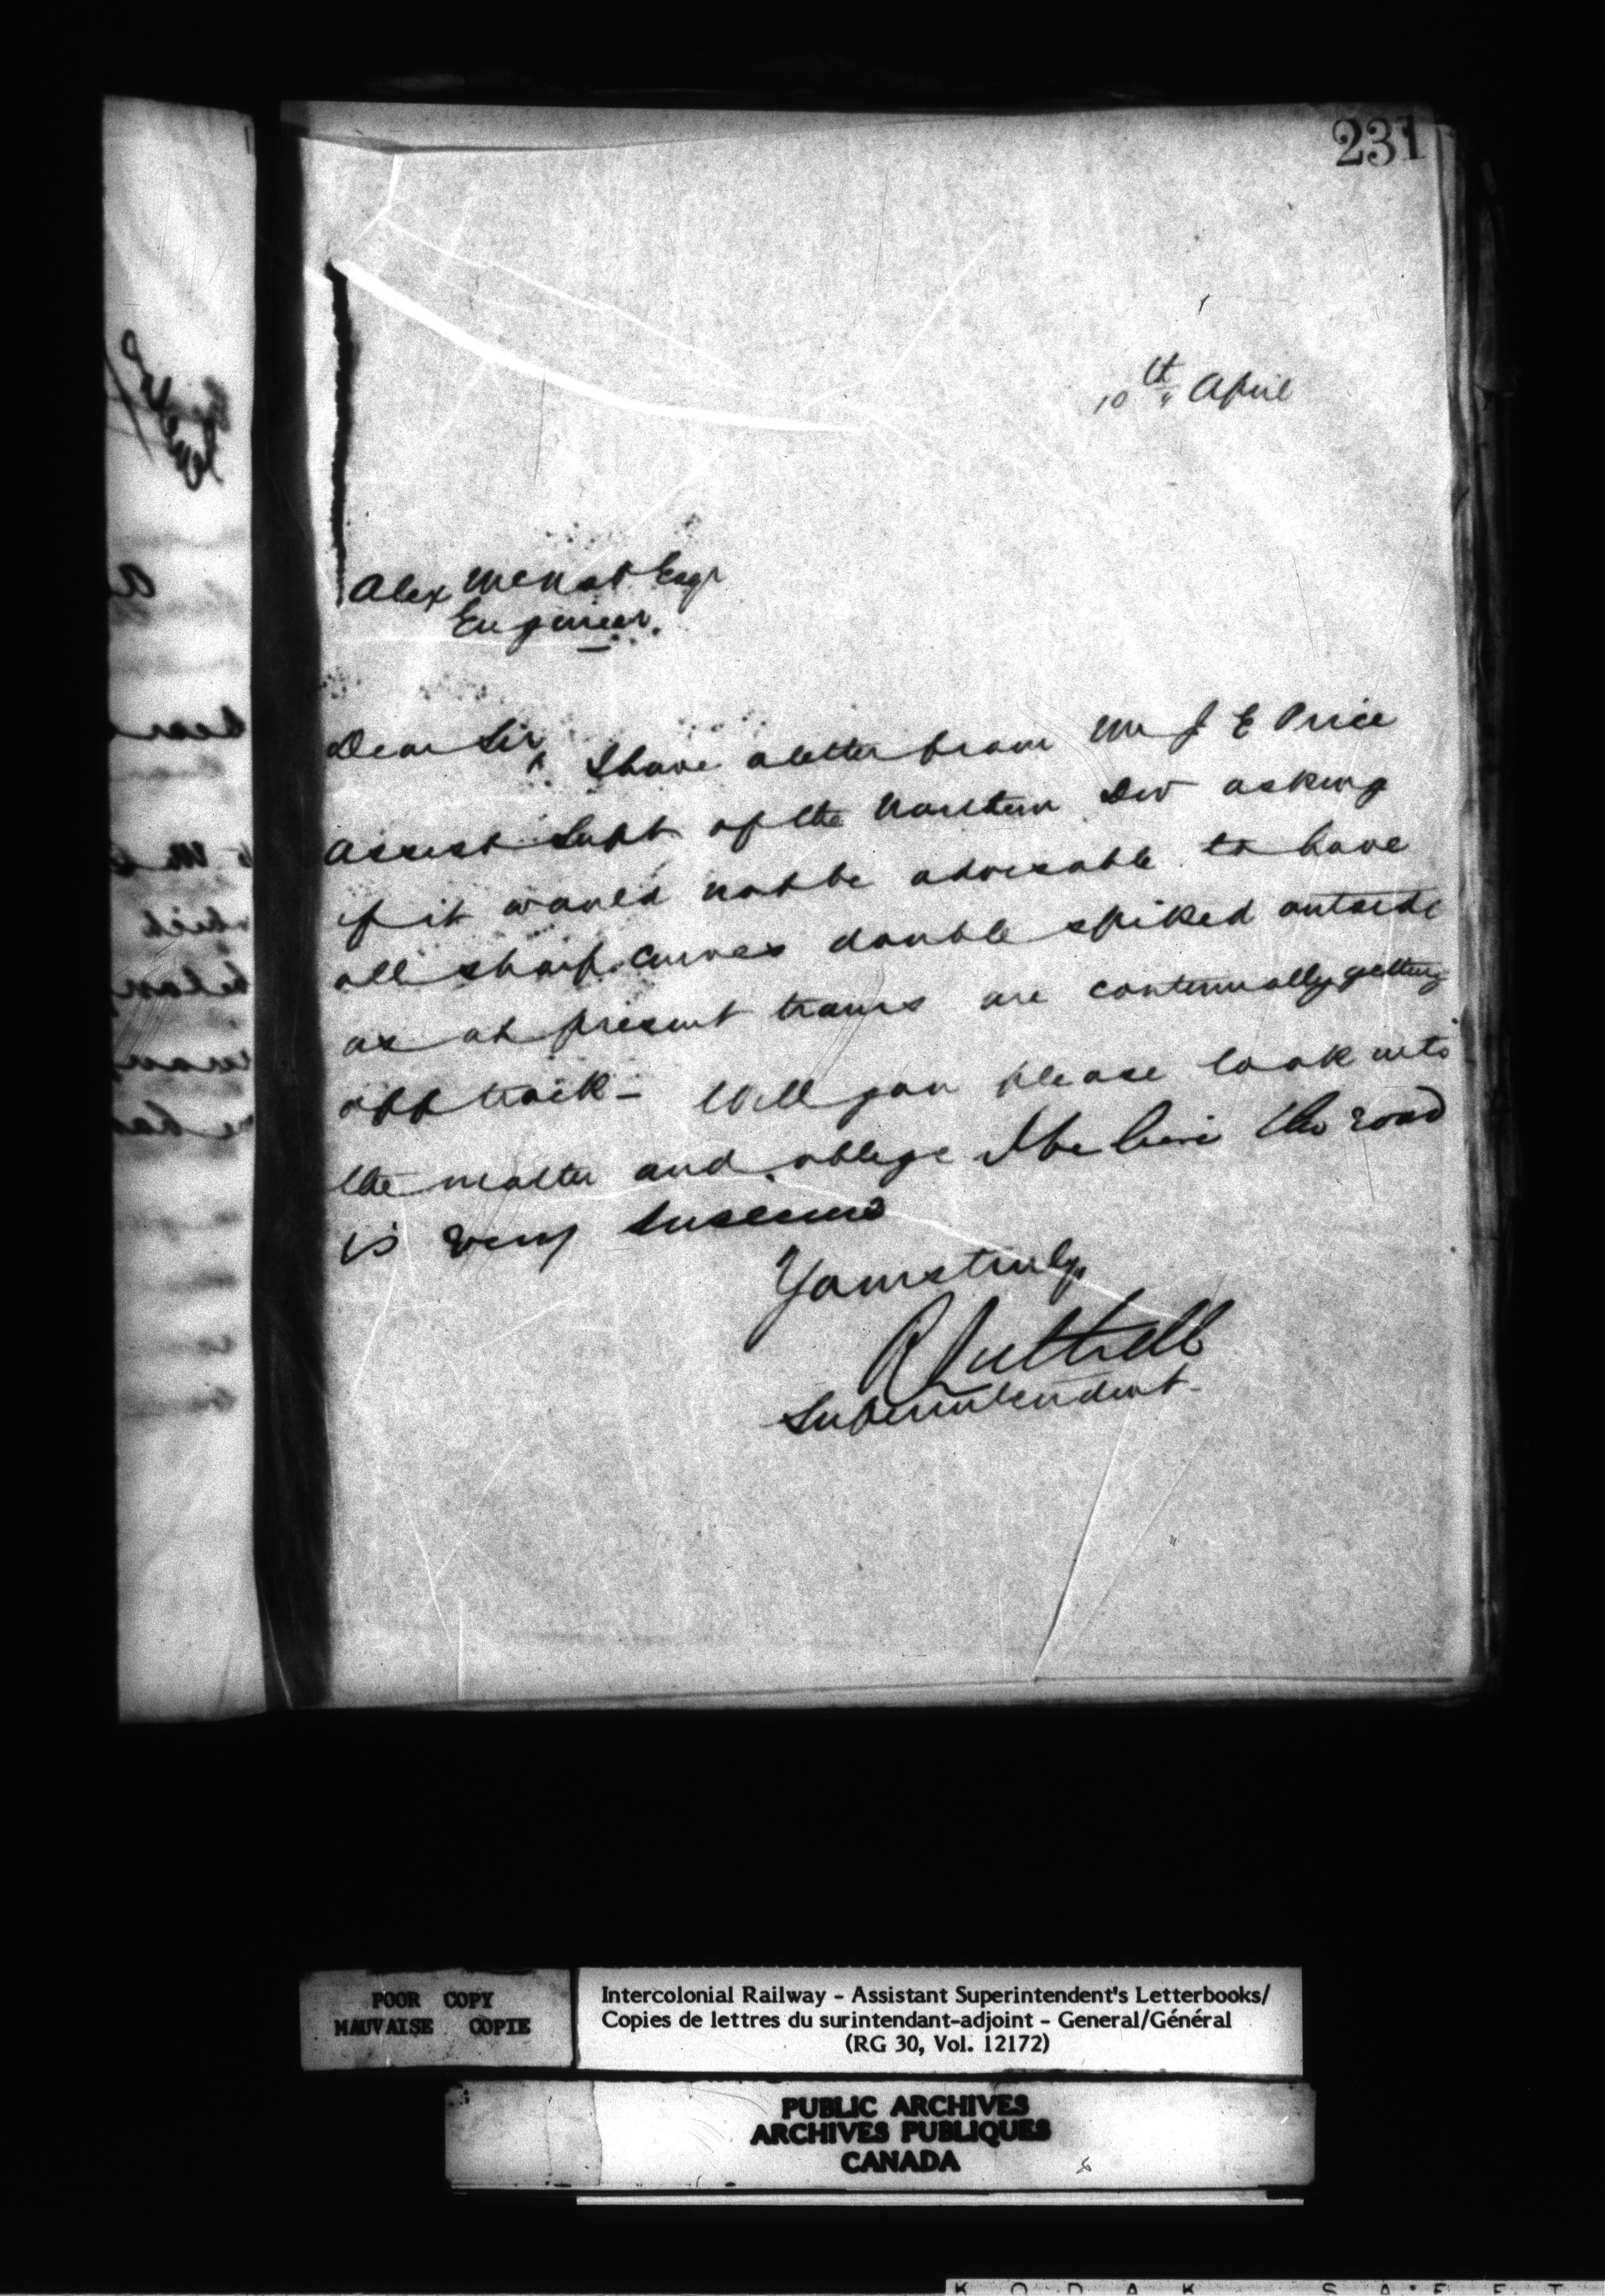 231
10th April
Alex McNab Esqr
Engineer.
Dear Sir,
I have a letter from Mr J E Price
Assist Supt of the Northern Div asking
if it would not be advisable to have
all sharp curves double spiked outside
as at present trains are continually getting
off track – Will you please look into
the matter and oblige I believe the road
is very insecure
Yours truly
R Luttrell
Superintendent
POOR COPY
MAUVAISE COPIE
Intercolonial Railway - Assistant Superintendent's Letterbooks/
Copies de lettres du surintendant-adjoint - General/Général
(RG 30, Vol. 12172)
PUBLIC ARCHIVES
ARCHIVES PUBLIQUES
CANADA
K O D A K S A F E T